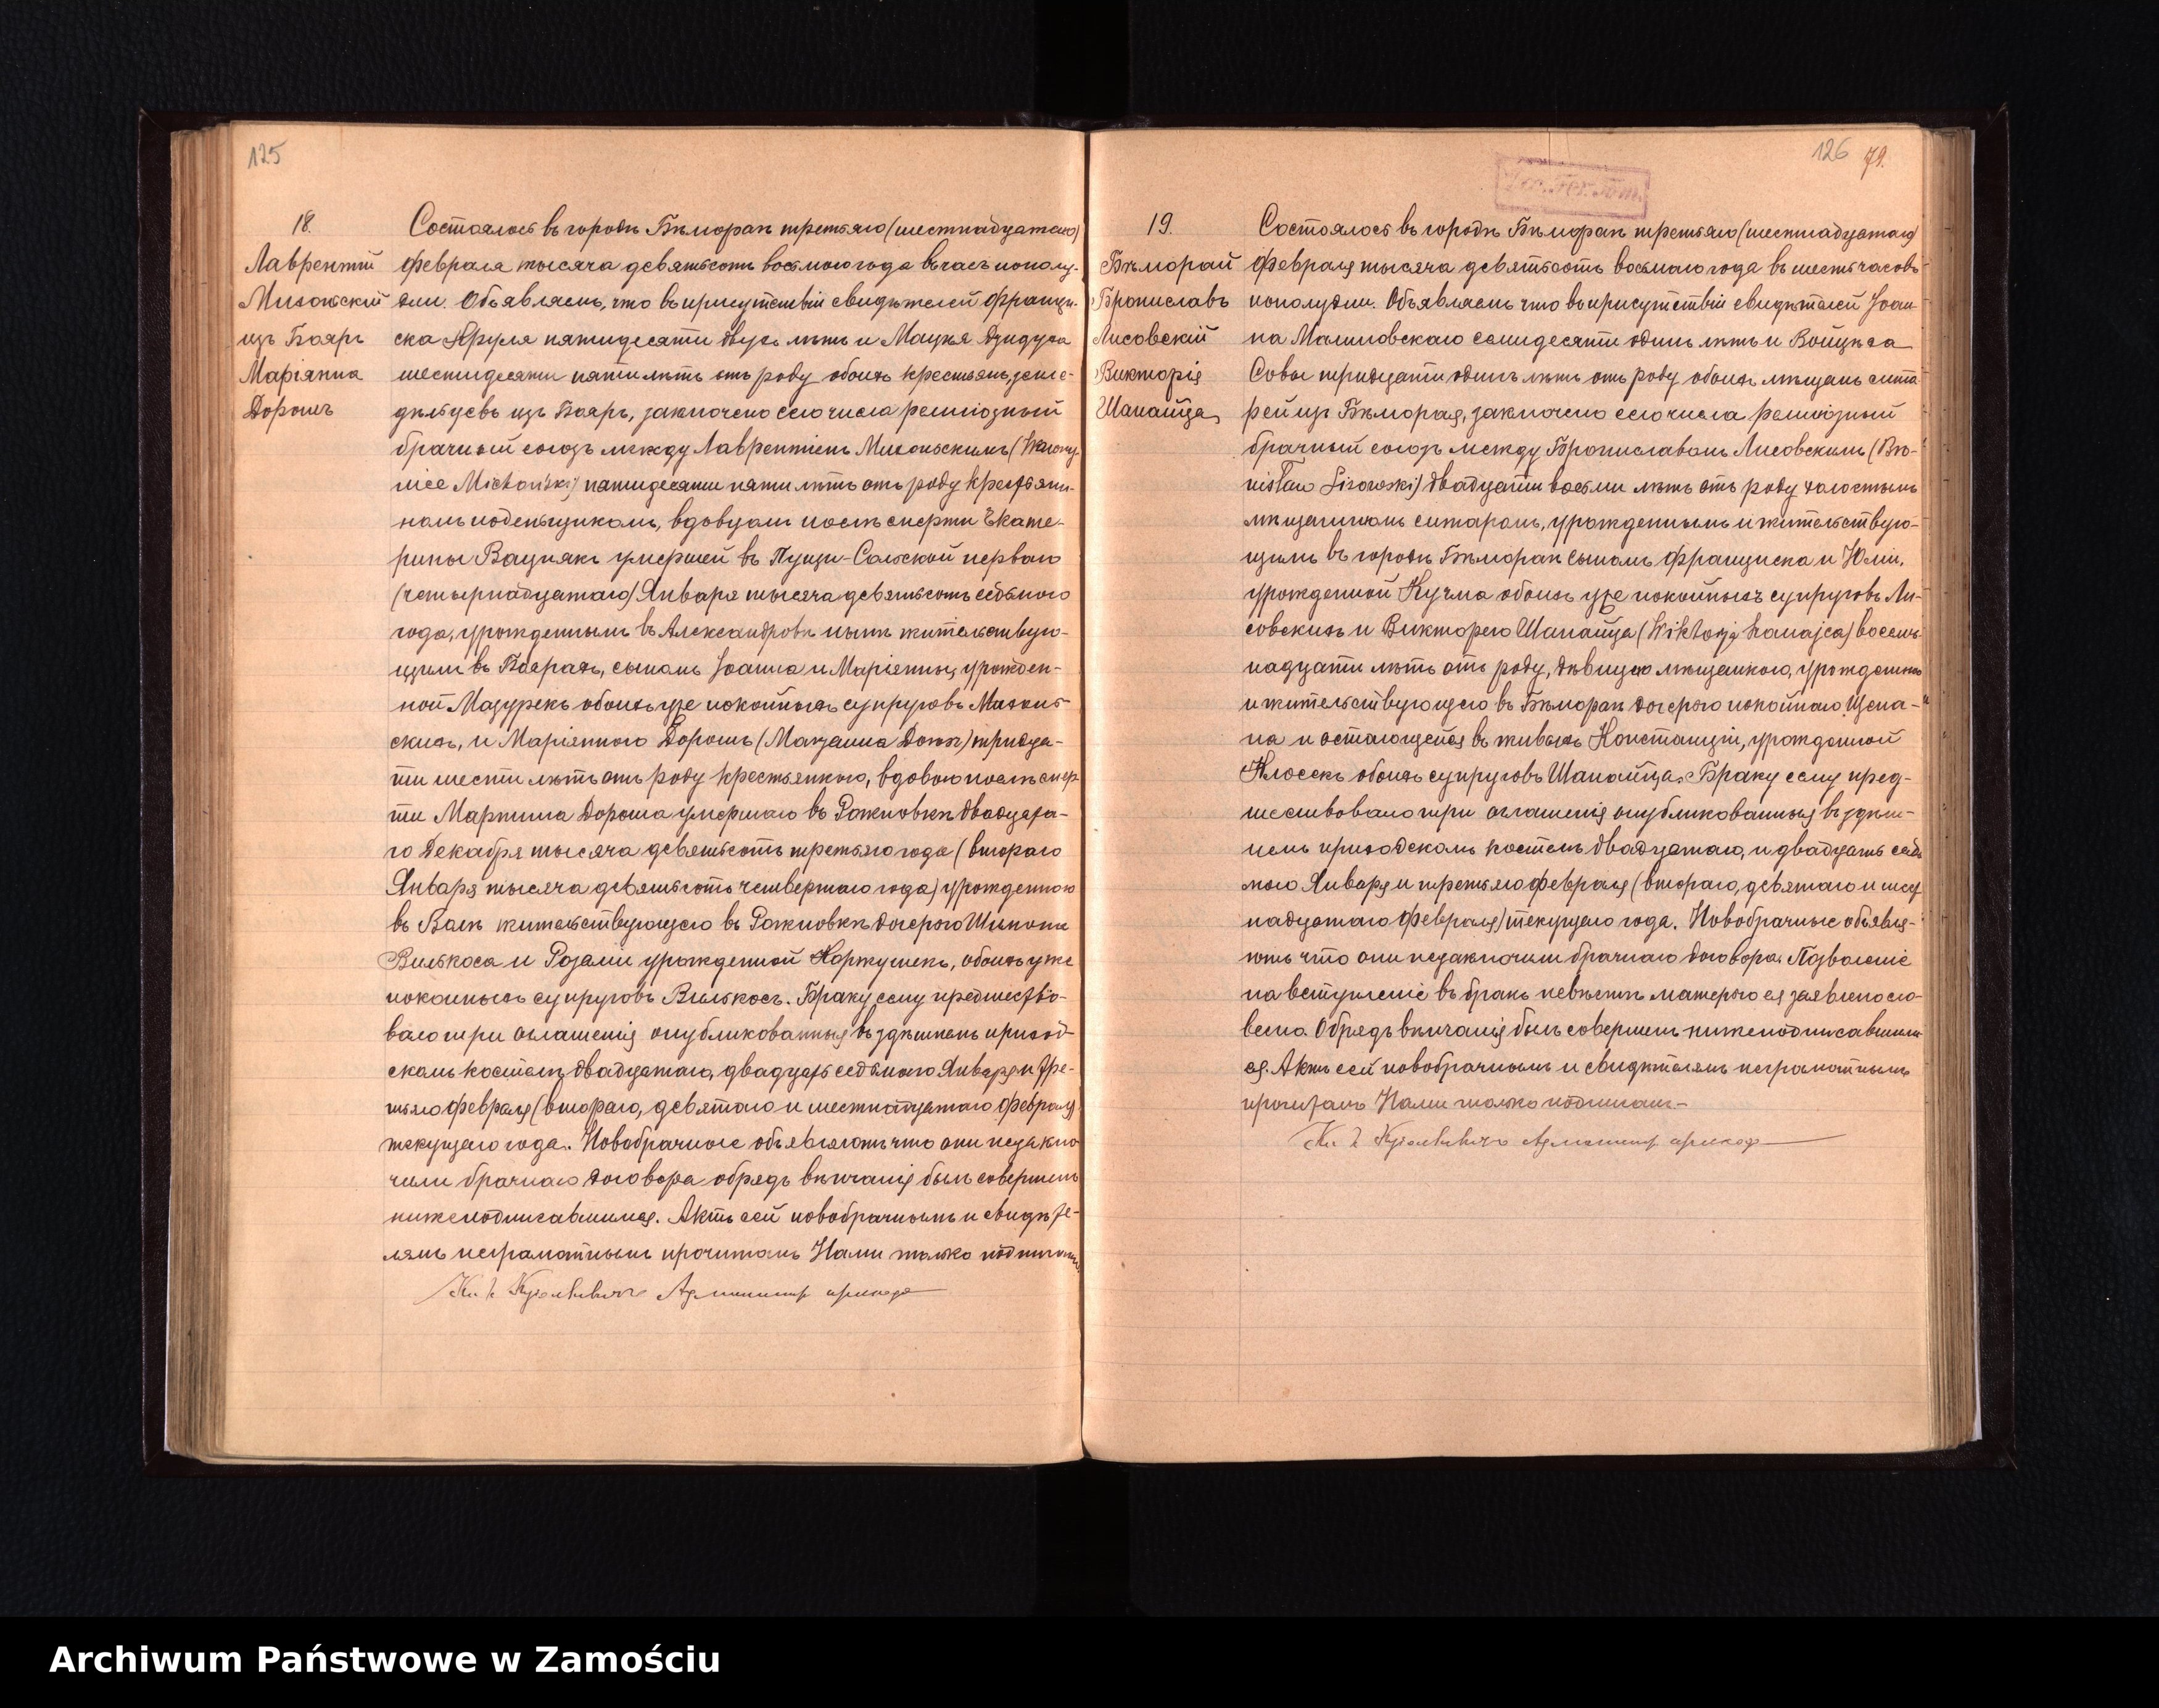 125
18.
Лаврентій
Михонскій
изъ Бояръ
Маріянна
Дорошъ
Состоялось въ городѣ Бѣлгораѣ третьяго (шестнадцатаго)
февраля тысяча девятьсотъ восьмого года въ часъ пополу-
дни. Объявляемъ, что въ присутствіи свидѣтелей Франци-
ска Круля пятидесяти двухъ лѣтъ и Мацѣя
шестидесяти пяти лѣтъ отъ роду обоихъ крестьянъ, земле-
дѣльцевъ изъ Бояръ, заключено сего числа религіозный
брачный союзъ между Лаврентіемъ Михоньскимъ (Wawrzy-
niec Michoński) пятидесяти пяти лѣтъ отъ роду крестьяни-
номъ поденьщикомъ, вдовцомъ послѣ смерти Екате-
рины Вацнякъ умершей въ Пущи-Сольской перваго
(четырнадцатаго) Января тысяча девятьсотъ седьмого
года, урожденнымъ въ Александровѣ нынѣ жительствую-
щимъ въ Боярахъ, сыномъ Іоанна и Маріянны, урожден-
ной Мазурекъ обоихъ уже покойныхъ супруговъ Михонь-
скихъ, и Маріянною Дорошъ (Maryanna Dorosz) тридца-
ти шести лѣтъ отъ роду крестьянкою, вдовою послѣ смер-
ти Мартина Дороша умершаго въ Рожновкѣ двадцата-
го Декабря тысяча девятьсотъ третьяго года (второго
Января тысяча девятьсотъ четвертаго года) урожденною
въ Волѣ жительствующею въ Рожновкѣ дочерью Шимона
Вилькоса и Розаліи урожденной Коржушекъ, обоихъ уже
покойныхъ супруговъ Вилькосъ. Браку сему предшество-
вало три оглашенія опубликованныя въ здѣшнемъ приход-
скомъ костелѣ, двадцатаго, двадцать седьмого Января и тре-
тьяго февраля (второго, девятаго и шестнадцатаго февраля)
текущаго года. Новобрачные объявляютъ что они незаклю-
чили брачнаго договора обрядъ вѣнчанія былъ совершенъ
нижеподписавшимся. Актъ сей новобрачнымъ и свидѣте-
лямъ неграмотнымъ прочитанъ Нами только подписанъ
126 79.
19.
Бѣлгорай
Брониславъ
Лисовскій
Викторія
Шанайца
Состоялось въ городѣ Бѣлгораѣ третьяго (шестнадцатаго)
февраля тысяча девятьсотъ восьмаго года въ шесть часовъ
пополудни. Объявляемъ что въ присутствіи свидѣтелей Іоан-
на Малиновскаго семидесяти одинъ лѣтъ и Войцѣха
Совы тридцати одинъ лѣтъ отъ роду обоихъ мѣщанъ сита-
рей изъ Бѣлгорая, заключено сего числа религіозный
брачный союзъ между Брониславомъ Лисовскимъ (Bro-
nisław Lisowski) двадцати восьми лѣтъ отъ роду холостымъ
мѣщаниномъ ситаромъ, урожденнымъ и жительствую-
щимъ въ городѣ Бѣлгораѣ сыномъ Франциска и Юліи,
урожденной Кучма обоихъ уже покойныхъ супруговъ Ли-
совскихъ и Викторіею Шанайца (Wiktorja Szanajca) восемь-
надцати лѣтъ отъ роду, дѣвицею мѣщанкою, урожденною
и жительствующею въ Бѣлгораѣ дочерью покойнаго Щепа-
на и остающейся въ живыхъ Констанціи, урожденной
Клосекъ обоихъ супруговъ Шанайца. Браку сему пред-
шествовало три оглашенія опубликованныя въ здѣш-
немъ приходскомъ костелѣ двадцатаго, и двадцать седь-
мого Января и третьяго февраля (второго, девятаго и шест-
надцатаго февраля) текущаго года. Новобрачные объявля-
ютъ что они незаключили брачнаго договора. Позволеніе
на вступленіе въ бракъ невѣстѣ матерью ея заявлено сло-
весно. Обрядъ вѣнчанія былъ совершенъ нижеподписавшим-
ся. Актъ сей новобрачнымъ и свидѣтелямъ неграмотнымъ
прочитанъ Нами только подписанъ-
Archiwum Państwowe w Zamościu